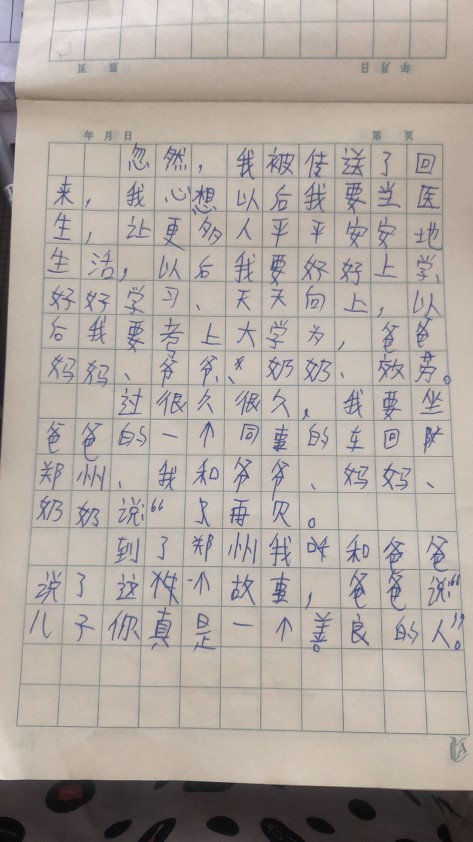 第 页 年 月 日
年 月 日 第 页
忽然，我被传送了回
来，我心想以后我要当医
生，让更多人平平安安地
生活，以后我要好好上学、
好好学习、天天向上，以
后我要考上大学为，爸爸
妈妈、爷爷、奶奶、效劳。
过很久很久，我要坐
爸爸的一个同事的车回
郑州、我和爷爷、妈妈、
奶奶说：“再见。
到了郑州我和爸爸
说了这个故事，爸爸说“
儿子你真是一个善良的人”。